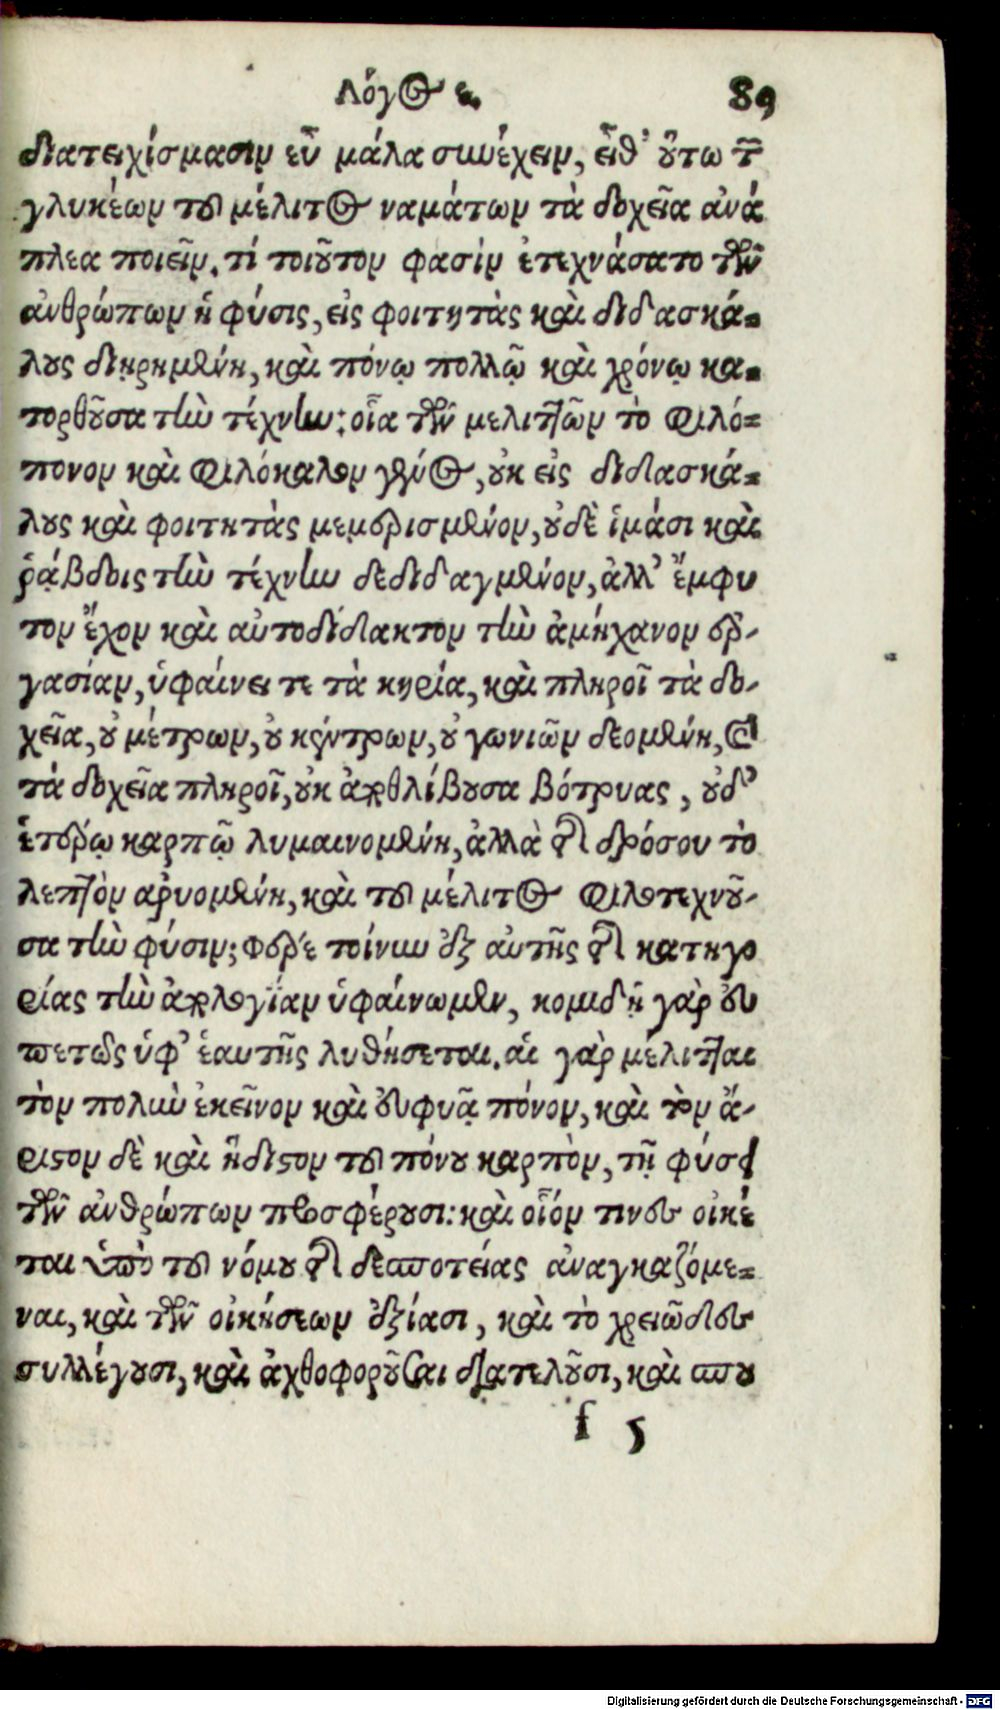 Λόγος ε. 89
διατειχίσμασιν εὖ μάλα συνέχειν, εἶθ' οὕτω τῶν
γλυκέων τοῦ μέλιτος ναμάτων τὰ δοχεῖα ἀνά
πλεα ποιεῖν. τί τοιοῦτον φασὶν ἐτεχνάσατο τῶν
ἀνθρώπων ἡ φύσις, εἰς φοιτητὰς καὶ διδασκά-
λους διῃρημένη, καὶ πόνῳ πολλῷ καὶ χρόνῳ κα-
τορθοῦσα τὴν τέχνην; οἷα τῶν μελιττῶν τὸ φιλό-
πονον καὶ φιλόκαλον γένος, οὐκ εἰς διδασκά-
λους καὶ φοιτητὰς μεμερισμένον, οὐδὲ ἱμάσι καὶ
ῥάβδοις τὴν τέχνην δεδιδαγμένον, ἀλλ' ἔμφυ
τον ἔχον καὶ αὐτοδίδακτον τὴν ἀμήχανον ἐρ-
γασίαν, ὑφαίνει τε τὰ κηρία, καὶ πληροῖ τὰ δο-
χεῖα, οὐ μέτρων, οὐ κέντρων, οὐ γωνιῶν δεομένη, καὶ
τὰ δοχεῖα πληροῖ, οὐκ ἀποθλίβουσα βότρυας, οὐδ'
ἑτέρῳ καρπῷ λυμαινομένη, ἀλλὰ τῆς δρόσου τὸ
λεπτὸν ἀρυομένη, καὶ τοῦ μέλιτος φιλοτεχνοῦ-
σα τὴν φύσιν; φέρε τοίνυν ἐξ αὐτῆς τῆς κατηγο
ρίας τὴν ἀπολογίαν ὑφαίνωμεν, κομιδῇ γὰρ εὐ
πετῶς ὑφ' ἑαυτῆς λυθήσεται. αἱ γὰρ μέλιτται
τὸν πολὺν ἐκεῖνον καὶ εὐφυᾶ πόνον, καὶ τὸν ἄ-
ριστον δὲ καὶ ἥδιστον τοῦ πόνου καρπὸν, τῇ φύσει
τῶν ἀνθρώπων προσφέρουσι: καὶ οἷόν τινες οἰκέ
ται ὑπὸ τοῦ νόμου τῆς δεσποτείας ἀναγκαζόμε-
ναι, καὶ τῶν οἰκήσεων ἐξίασι, καὶ τὸ χρειῶδες
συλλέγουσι, καὶ ἀχθοφοροῦσαι διατελοῦσι, καὶ σπου
f 5
Digitalisierung gefördert durch die Deutsche Forschungsgemeinschaft - DFG